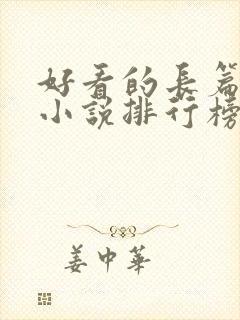 好看的長篇
小說排行榜
姜中華